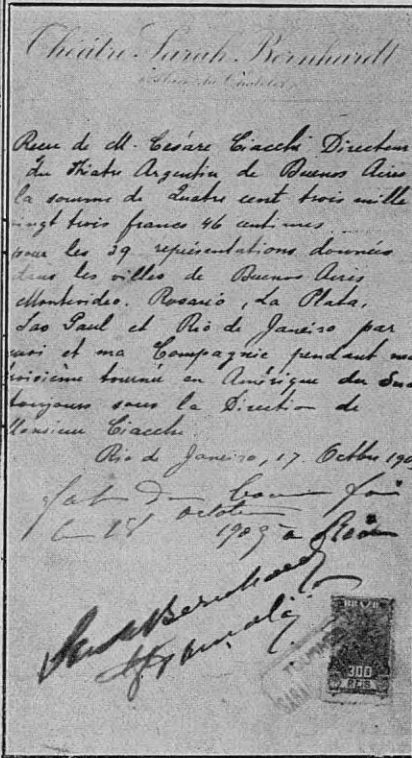 Théâtre Sarah Bernhardt
Recu de M. Césare Ciacchi Directeur
du Theatre Argentin de Buenos Aires
la somme de Quatre cent trois mille
vingt trois francs 46 centimes
pour les 39 représentations données
dans les villes de Buenos Aires
Montevideo. Rosario, La Plata,
Sao Paul et Rio de Janeiro par
moi et ma Compagnie pendant ma
troisième tournée en Amérique du Sud
toujours sous la Direction de
Monsieur Ciacchi.
Rio de Janeiro, 17. Octbre 190
fait
le octobre
1905 a Rio
Sarah Bernhardt
300
REIS